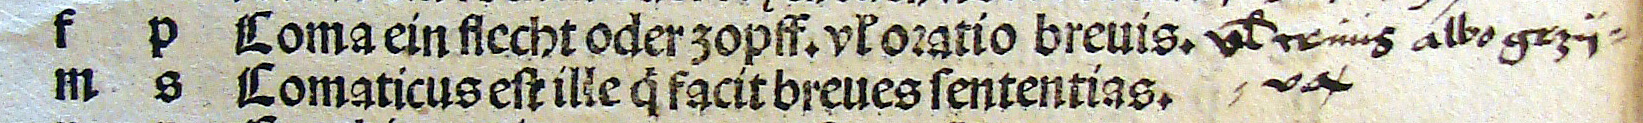 f p Coma ein flecht oder zopff. vł oratio breuis. vł crinis
m s Comaticus est ille q̄ facit breues sententias.